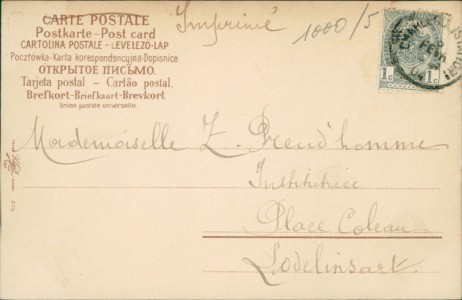 CARTE POSTALE
Postkarte - Post card
CARTOLINA POSTALE - LEVELEZÖ-LAP
Pocztówka-Karta korespondencyjna-Dopisnice
ОТКРЫТОЕ ПИСЬМО.
Tarjeta postal - Cartão postal.
Brefkort-Briefkaart-Brevkort.
Union postale universelle.
Imprimé
1000/5
1c 1c
Mademoiselle Z. Preud'homme
Institutrice
Place Coleau
Lodelinsart.